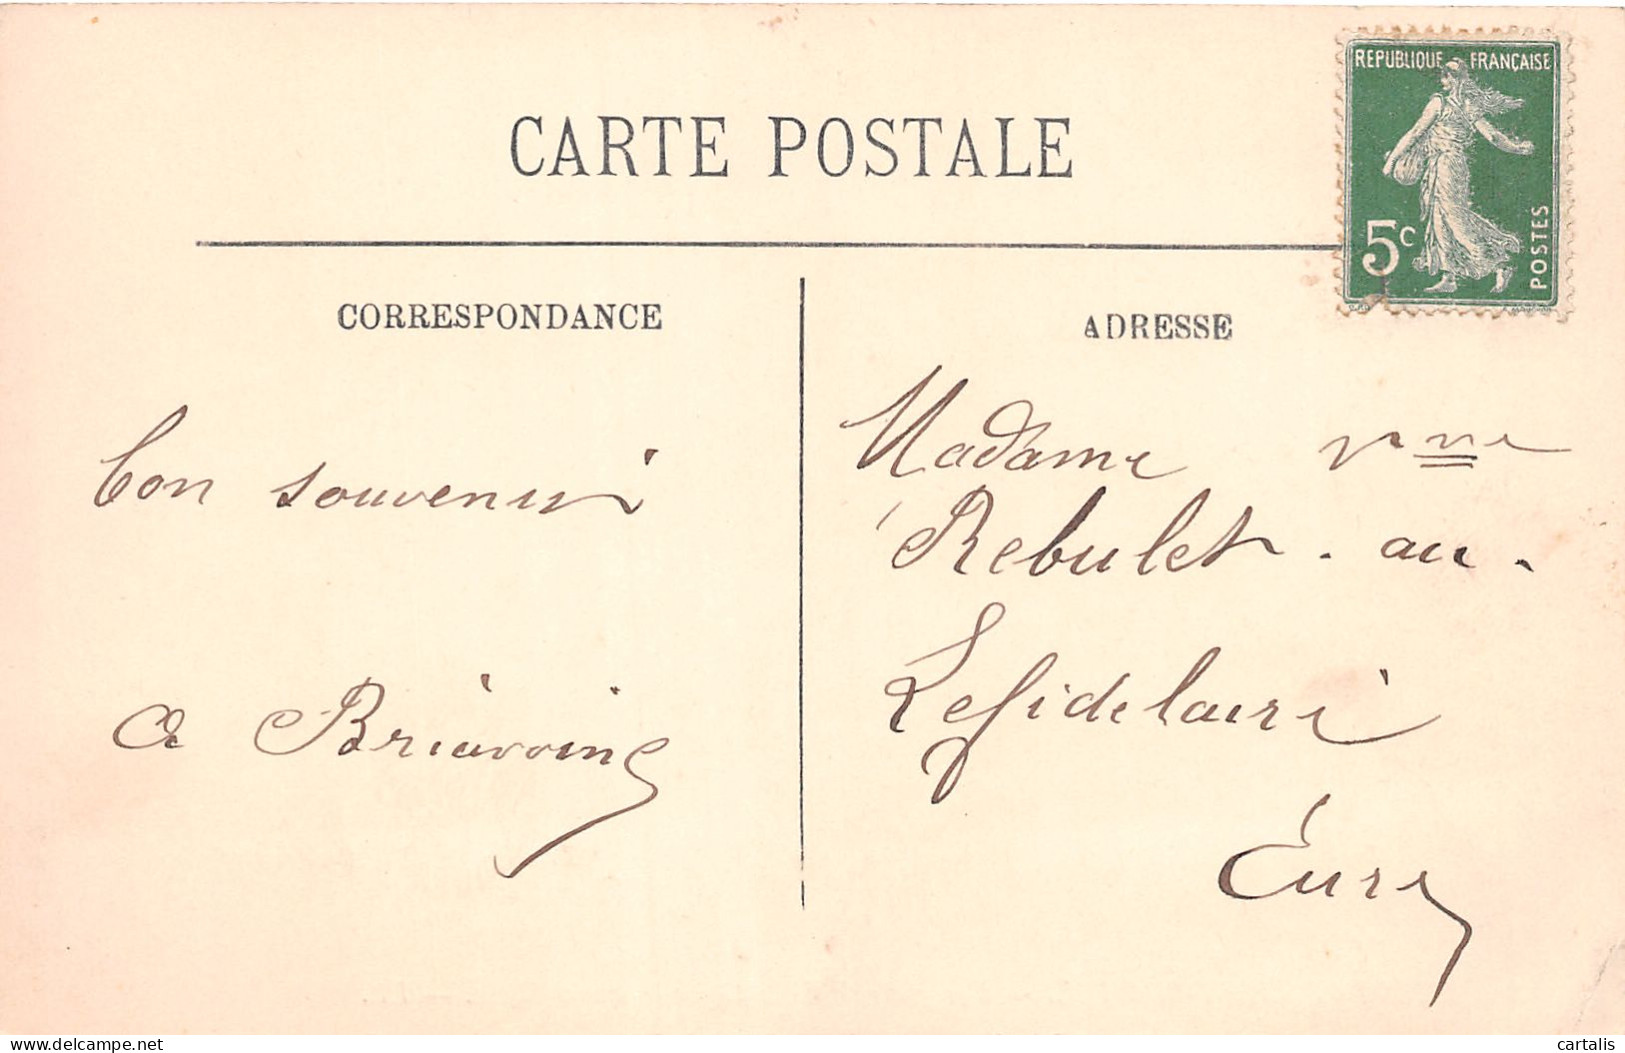 CARTE POSTALE
REPUBLIQUE FRANÇAISE
5c
POSTES
CORRESPONDANCE
bon souvenir
ADRESSE
Madame Vve
Rebulet - au -
Lefidelaire
Eure
delcampe.net
cartalis